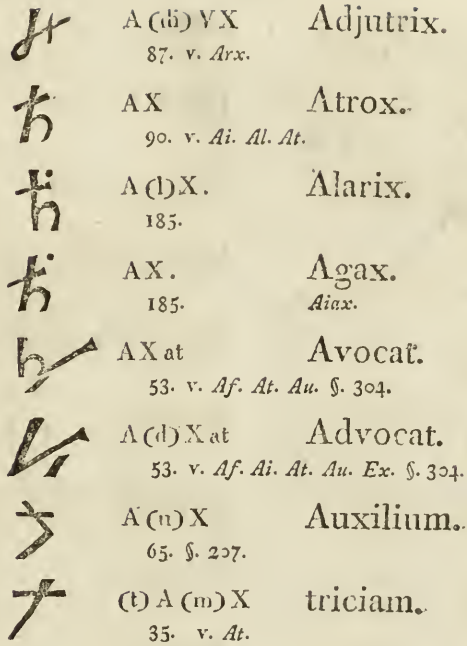 A (di) VX Adjutrix.
87. v. Arx.
AX Atrox.
90. v. Ai. Al. At.
A (l) X. Alarix.
185.
AX. Agax.
185. Aiax.
AX at Avocat.
53. v. Af. At. Au. §. 304.
A (d) X at Advocat.
53. v. Af. Ai. At. Au. Ex. §. 304.
A (u) X Auxilium.
65. §. 207.
(t) A (m) X triciam.
35. v. At.